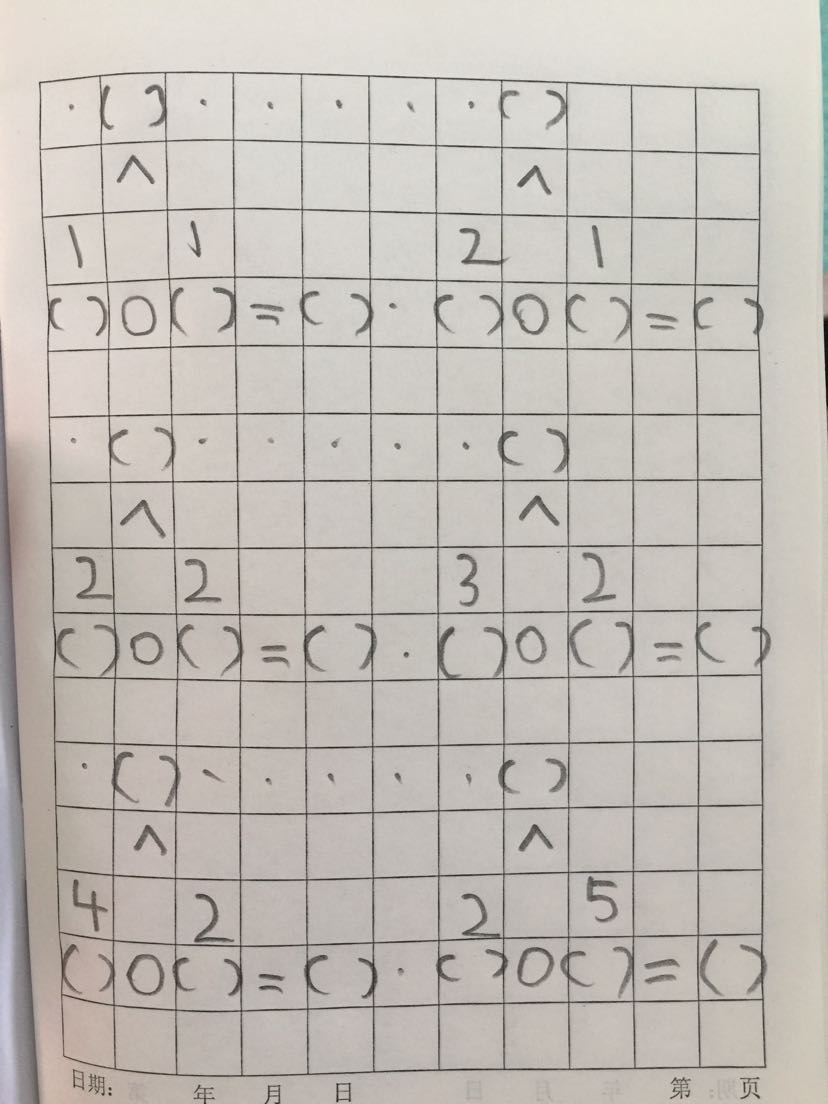 ·( )·····( )
∧ ∧
1 1 2 1
( )○( )=( )·( )○( )=( )
·( )·····( )
∧ ∧
2 2 3 2
( )○( )=( )·( )○( )=( )
·( )·····( )
∧ ∧
4 2 2 5
( )○( )=( )·( )○( )=( )
日期: 年 月 日 第 页